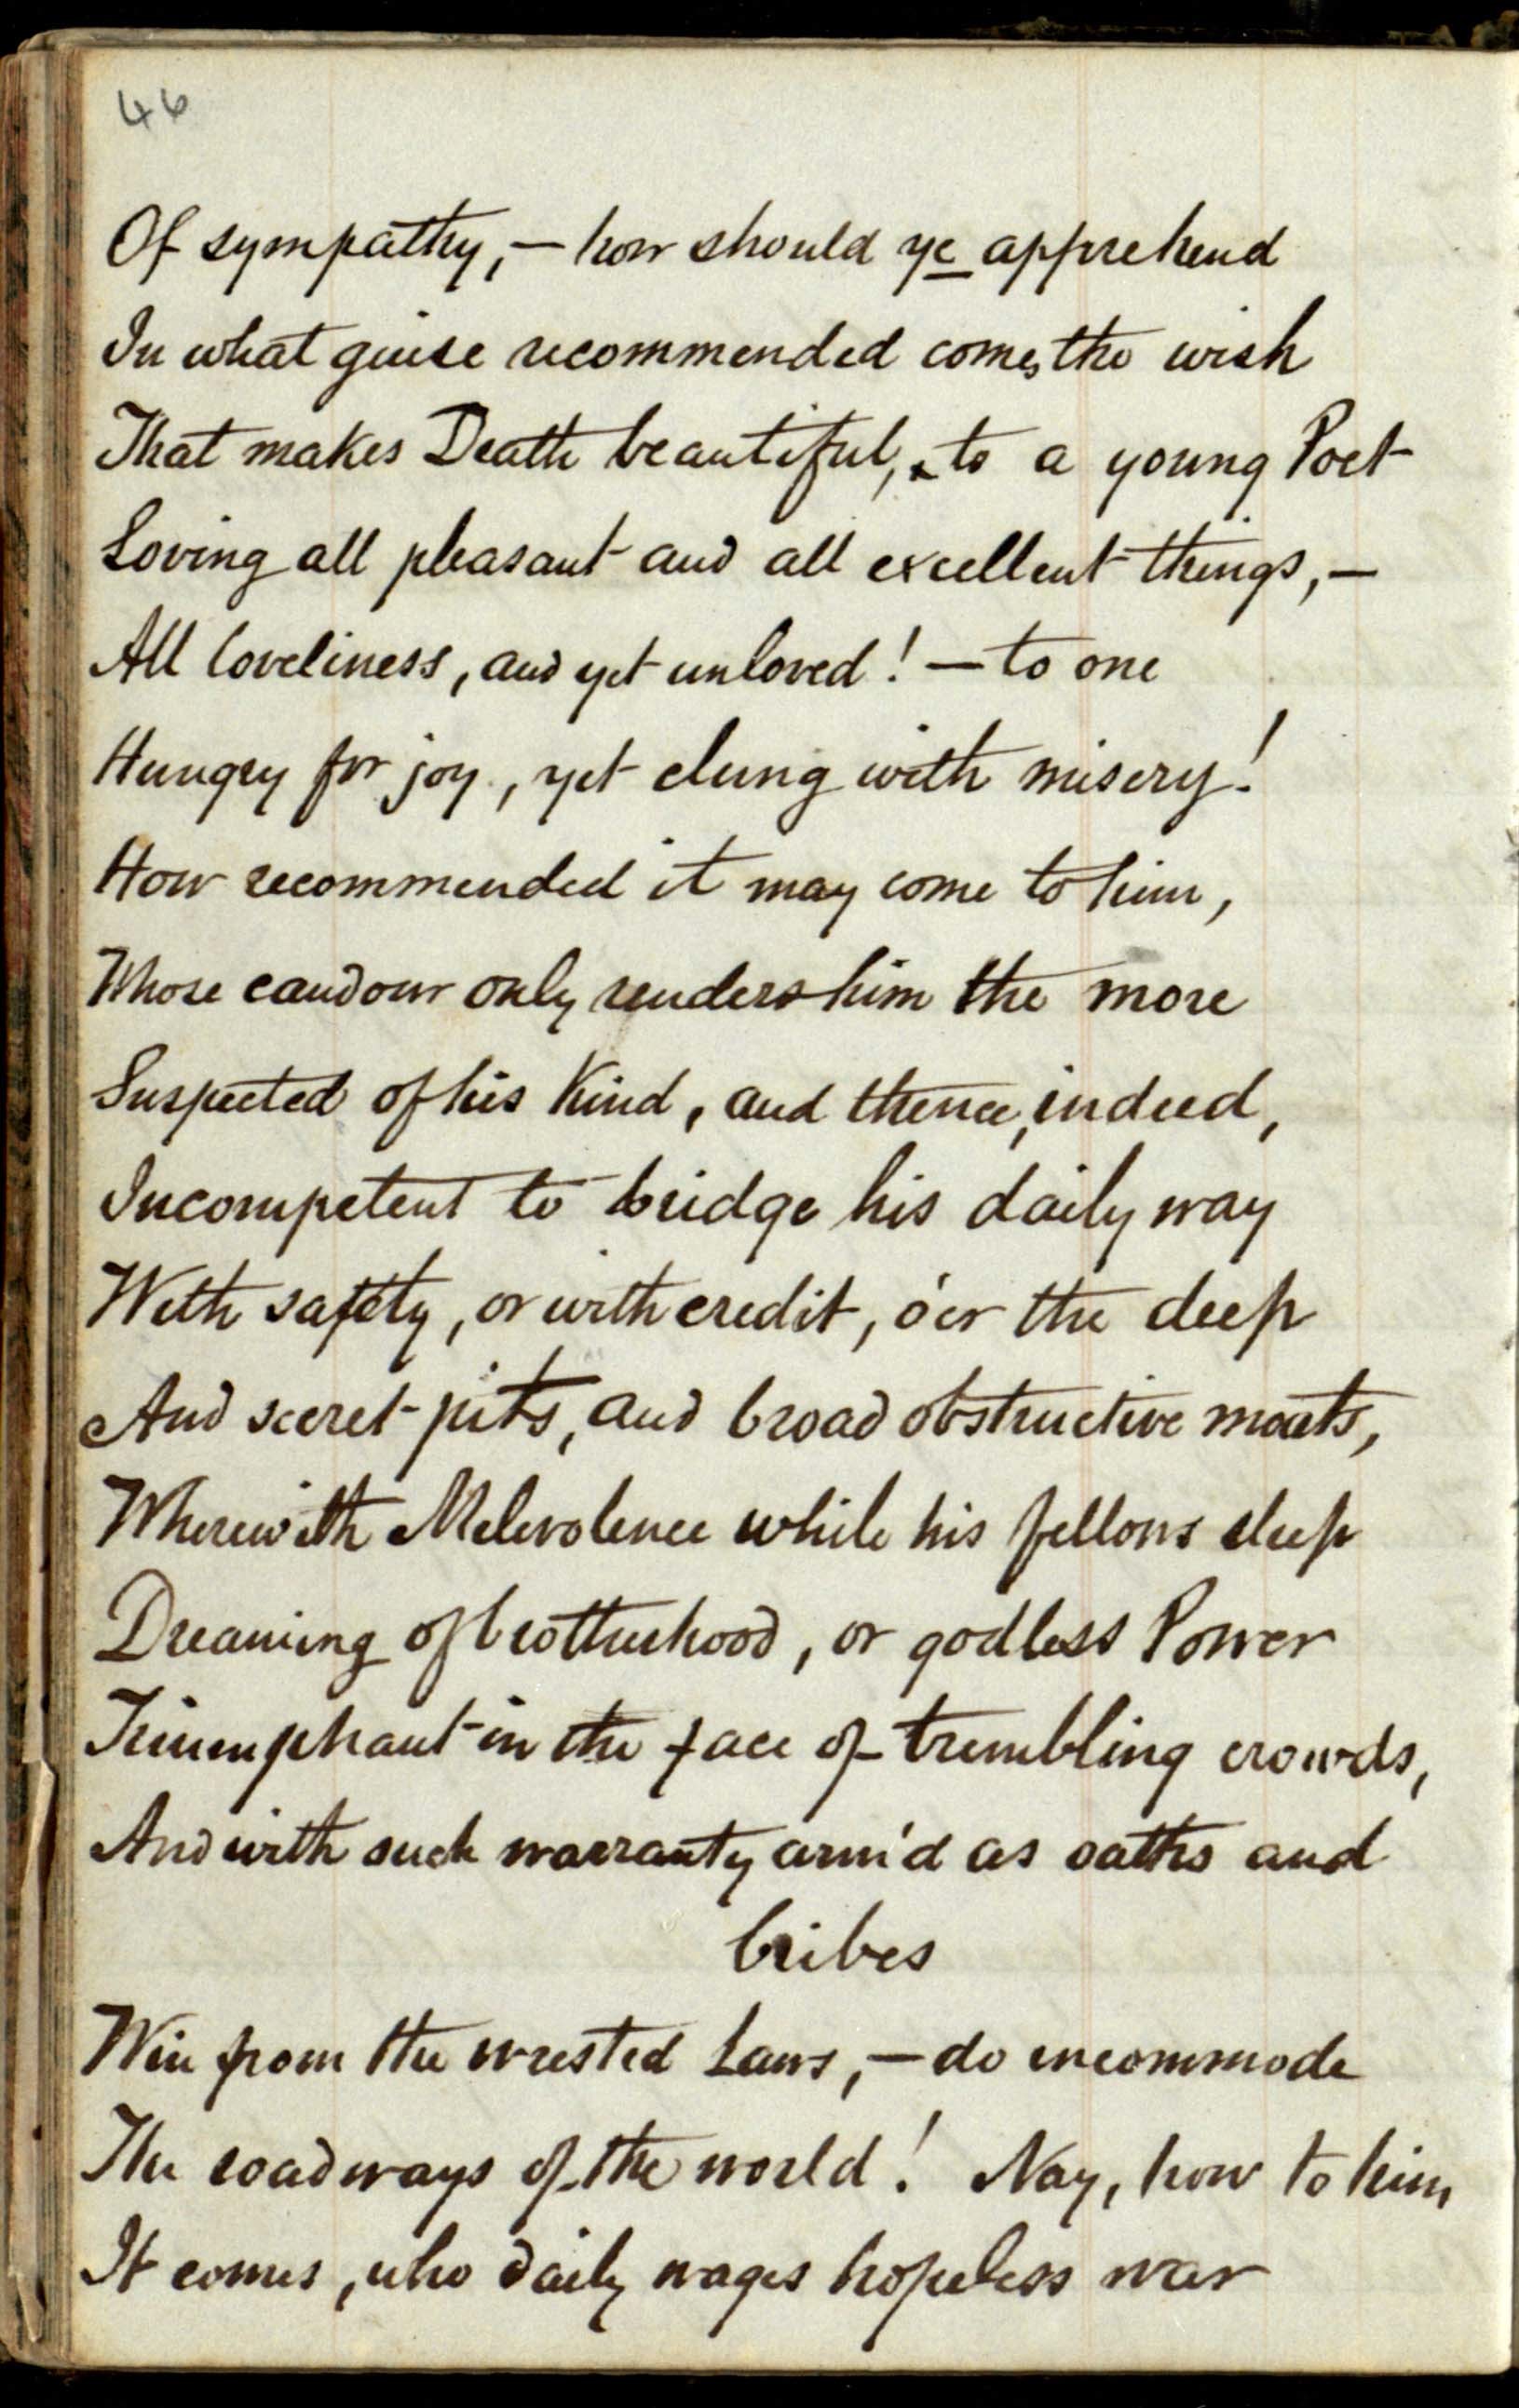 46
Of sympathy, — how should ye apprehend
In what guise recommended comes the wish
That makes Death beautiful, to a young Poet
Loving all pleasant and all excellent things, —
All loveliness, and yet unloved! — to one
Hungry for joy, yet clung with misery!
How recommended it may come to him,
Whose candour only renders him the more
Suspected of his Kind, and thence, indeed,
Incompetent to bridge his daily way
With safety, or with credit, o'er the deep
And secret pits, and broad obstructive moats,
Wherewith Malevolence while his fellows sleep
Dreaming of brotherhood, or godless Power
Triumphant in the face of trembling crowds,
And with such warranty arm'd as oaths and
bribes
Win from the wrested Laws, — do incommode
The roadways of the world! Nay, how to him
It comes, who daily wages hopeless war